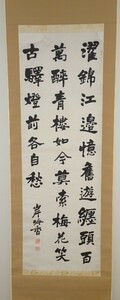 濯錦江邊憶舊遊纏頭百
萬醉青樓如今莫索梅花笑
古驛燈前各自愁